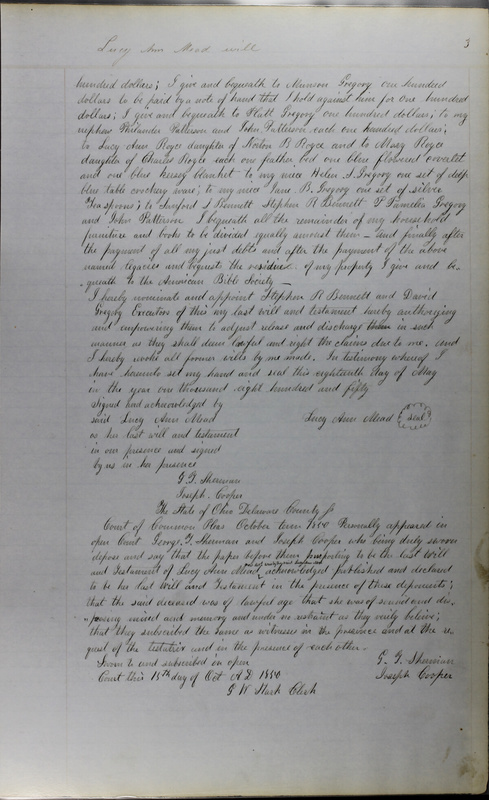 Lucy Ann Mead will
3
hundred dollars; I give and bequeath to Munson Gregory one hundred
dollars to be paid by a note of hand that I hold against him for one hundred
dollars; I give and bequeath to Platt Gregory one hundred dollars; to my
nephews Philander Patterson and John Patterson each one hundred dollars;
to Lucy Ann Royce daughter of Norton B Royce and to Mary Royce
daughter of Charles Royce each one feather bed one blue flowered coverlet
and one blue kersey blanket to my niece Helen S. Gregory one set of deep
blue table crockery ware; to my niece Jane B. Gregory one set of silver
Teaspoons; to Sanford S Bennett Stephen R Bennett & Pamelia Gregory
and John Patterson I bequeath all the remainder of my household
furniture and books to be divided equally amongst them – and finally after
the payment of all my just debts and after the payment of the above
named legacies and bequests the residue of my property I give and be-
-queath to the American Bible Society –
I hereby nominate and appoint Stephen R Bennett and David
Gregory Executors of this my last will and testament hereby authorizing
and empowering them to adjust release and discharge in such
manner as they shall deem lawful and right the claims due to me. and
I hereby revoke all former wills by me made. In testimony whereof I
have hereunto set my hand and seal this eighteenth day of May
in the year one thousand eight hundred and fifty
Signed and acknowledged by
said Lucy Ann Mead Lucy Ann Mead seal
as her last will and testament
in our presence and signed
by us in her presence
G. G. Sherman
Joseph Cooper
The State of Ohio Delaware County ss
Court of Common Pleas October term 1850 Personally appeared in
open Court George G. Sherman and Joseph Cooper who being duly sworn
depose and say that the paper before them purporting to be the last Will
and Testament of Lucy Ann Mead acknowledged published and declared
to be her last Will and Testament in the presence of these deponents;
that the said deceased was of lawful age that she was of sound and dis-
-posing mind and memory and under no restraint as they verily believe;
that they subscribed the same as witnesses in the presence and at the re-
quest of the testatrix and in the presence of each other –
Sworn to and subscribed in open G. G. Sherman
Court this 18th day of Oct A.D. 1850 Joseph Cooper
G W Stark Clerk